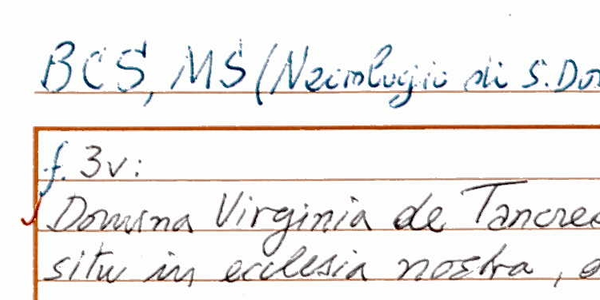 BCS, MS (Necrologio di S. Do
f. 3v:
Domina Virginia de Tancred
situ in ecclesia nostra,